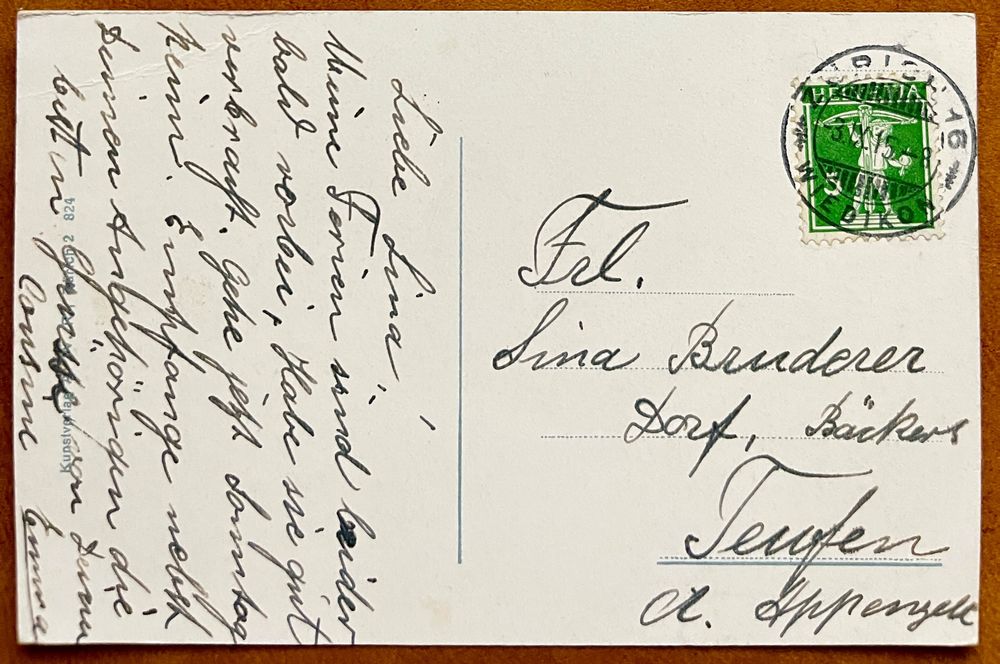 Liebe Lina!
Meine Ferien sind leider
bald vorbei, Habe sie gut
verbracht. Gehe jetzt Sonntag
heim. Empfange nebst
Deinen Angehörigen die
besten Grüsse von Deiner
Cousine Emma
Kunstverlag
824
HELVETIA
5
ZÜRICH 16
WIEDIKON
Frl.
Lina Bruderer
Dorf, Bäckers
Teufen
Ct. Appenzell